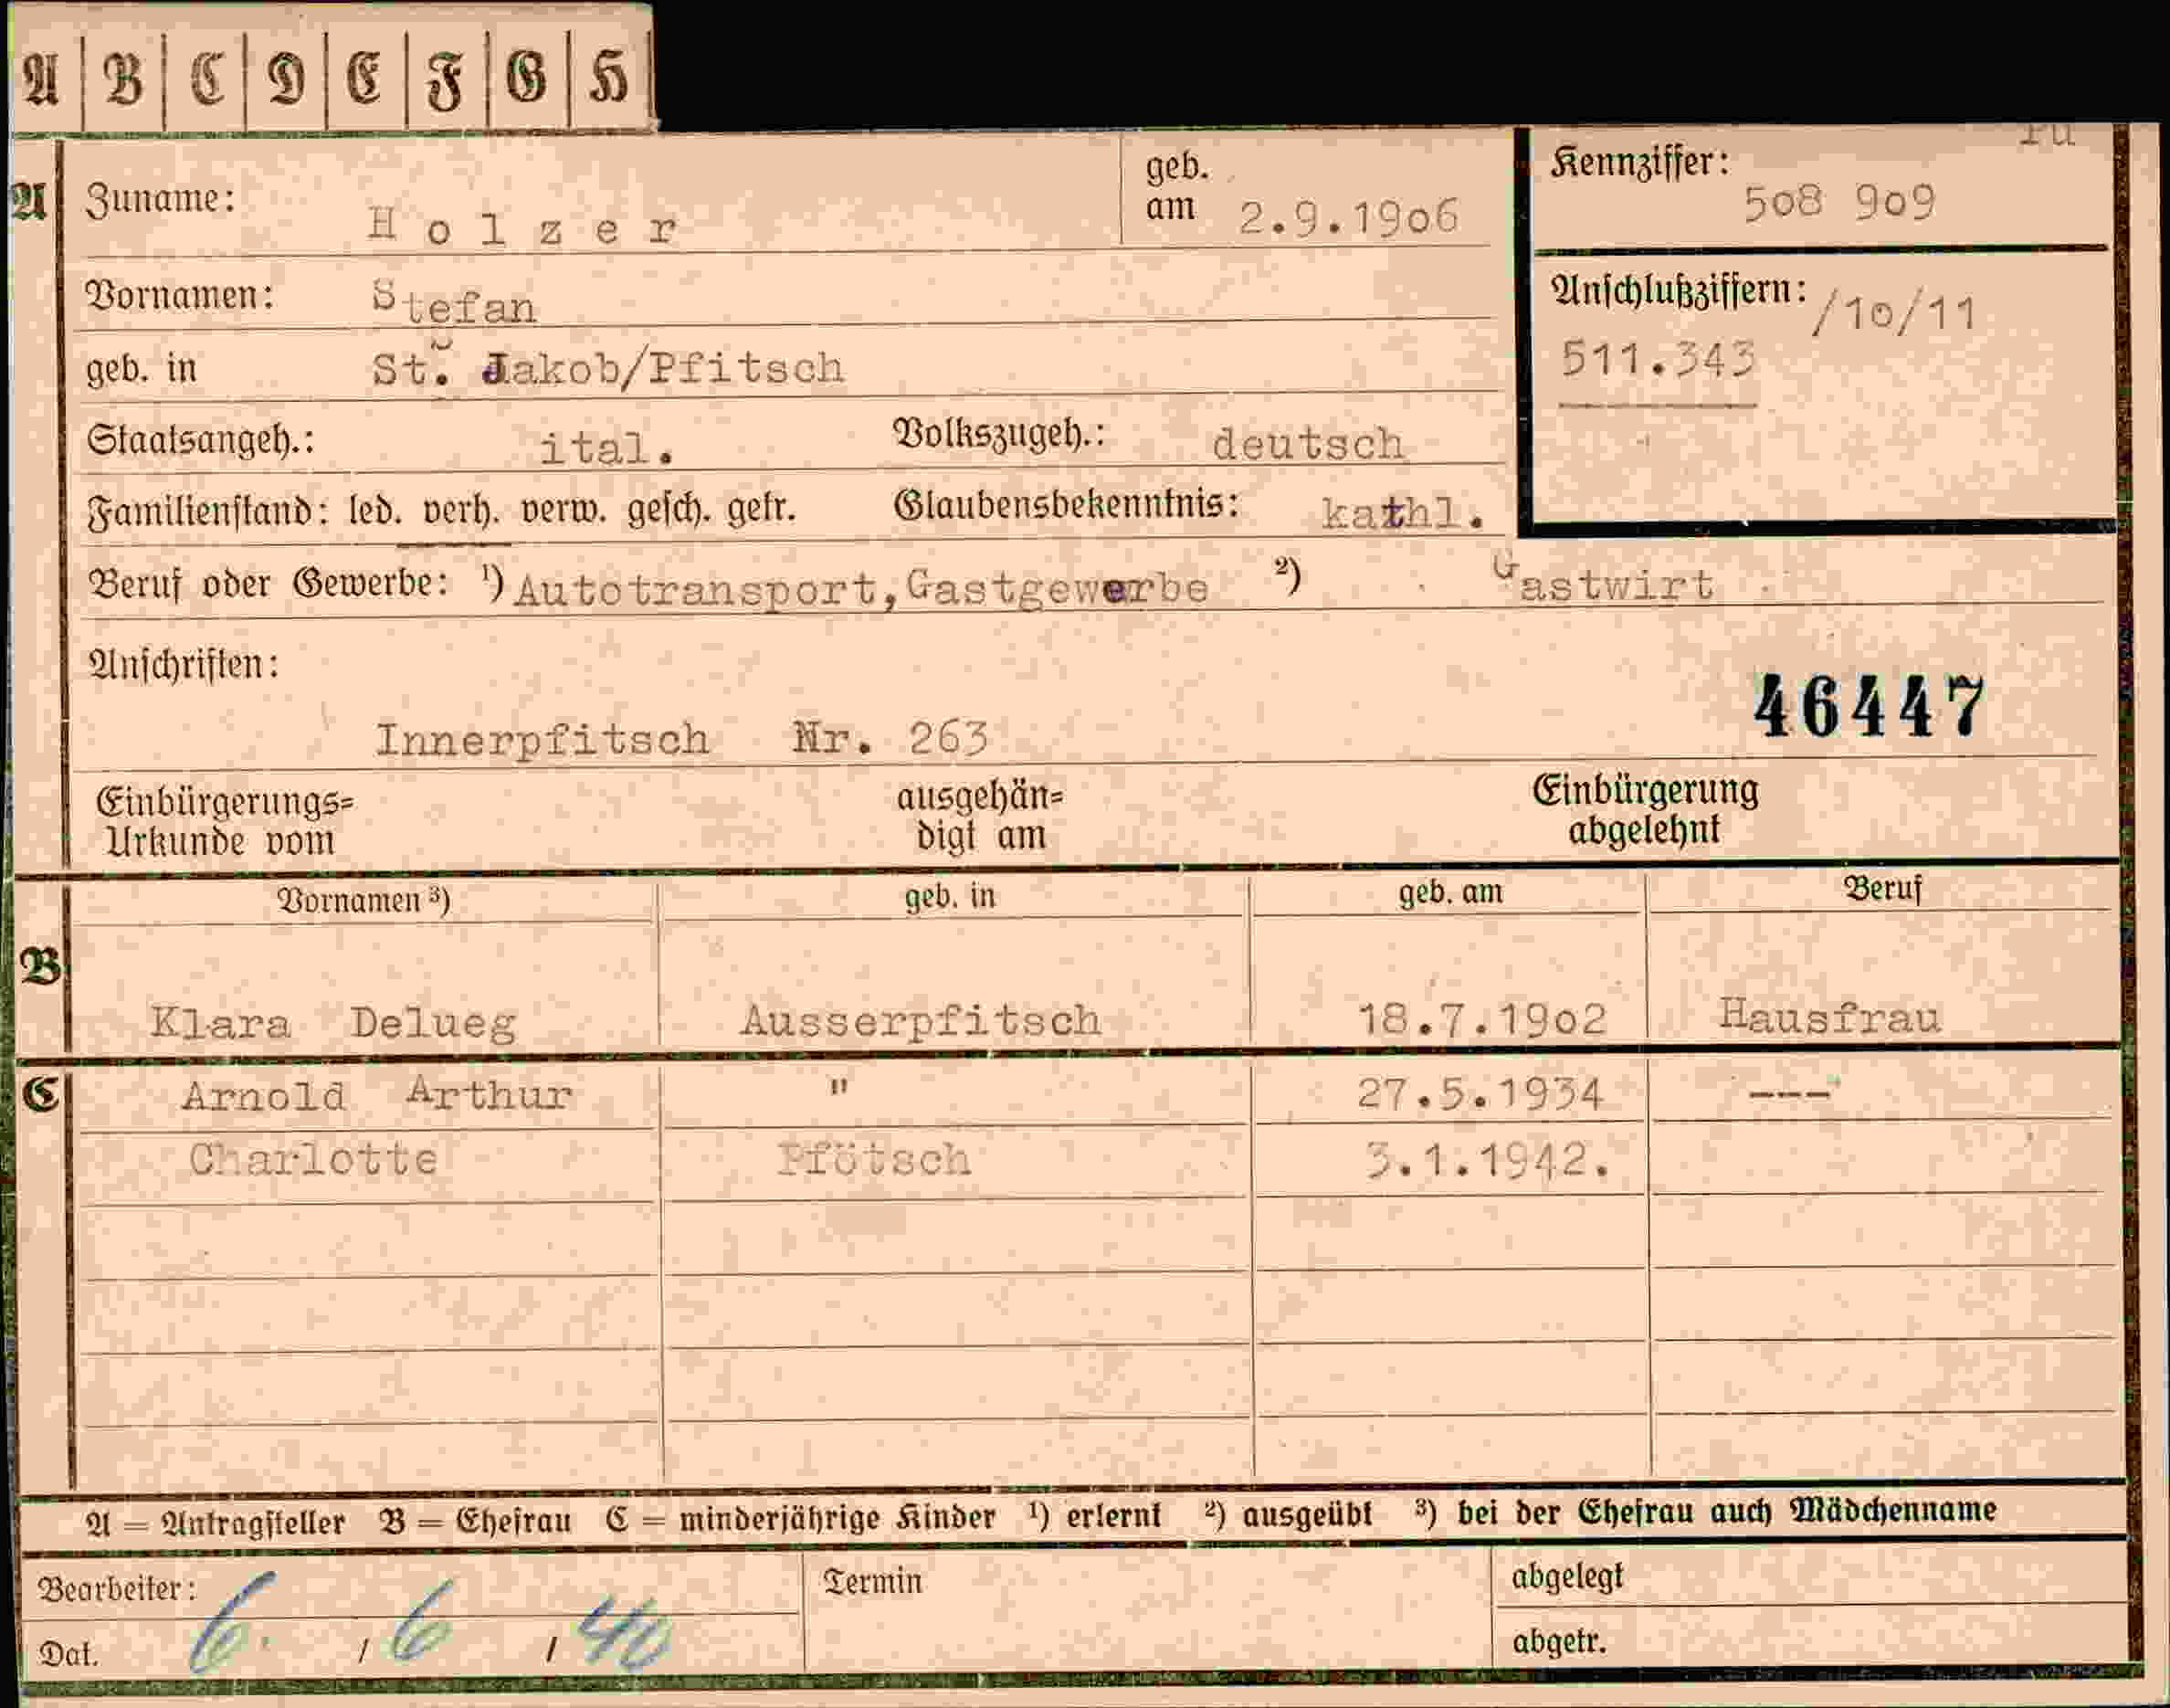 A B C D E F G H
A Zuname: Holzer geb. am 2.9.19o6
Kennziffer: 5o8 9o9
Vornamen: Stefan
Anschlußziffern: /1o/11
511.343
geb. in St. Jakob/Pfitsch
Staatsangeh.: ital. Volkszugeh.: deutsch
Familienstand: led. verh. verw. gesch. getr. Glaubensbekenntnis: kathl.
Beruf oder Gewerbe: ¹) Autotransport,Gastgewerbe ²) Gastwirt
Anschriften:
46447
Innerpfitsch Nr. 263
Einbürgerungs= ausgehän= Einbürgerung
Urkunde vom digt am abgelehnt
Vornamen ³) geb. in geb. am Beruf
B
Klara Delueg Ausserpfitsch 18.7.19o2 Hausfrau
C Arnold Arthur " 27.5.1934 ---
Charlotte Pfötsch 3.1.1942.
A = Antragsteller B = Ehefrau C = minderjährige Kinder ¹) erlernt ²) ausgeübt ³) bei der Ehefrau auch Mädchenname
Bearbeiter: Termin abgelegt
Dat. 6. / 6 / 40 abgetr.